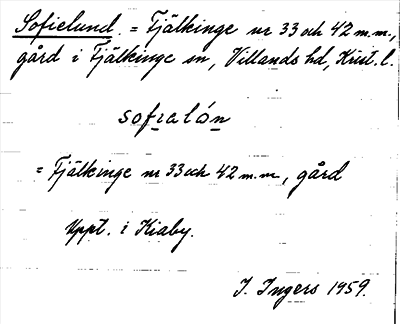 Sofielund = Fjälkinge nr 33 och 42 m.m.,
gård i Fjälkinge sn, Villands hd, Krist. l.
sofialón
= Fjälkinge nr 33 och 42 m.m, gård
Uppt. i Kiaby.
I. Ingers 1959.